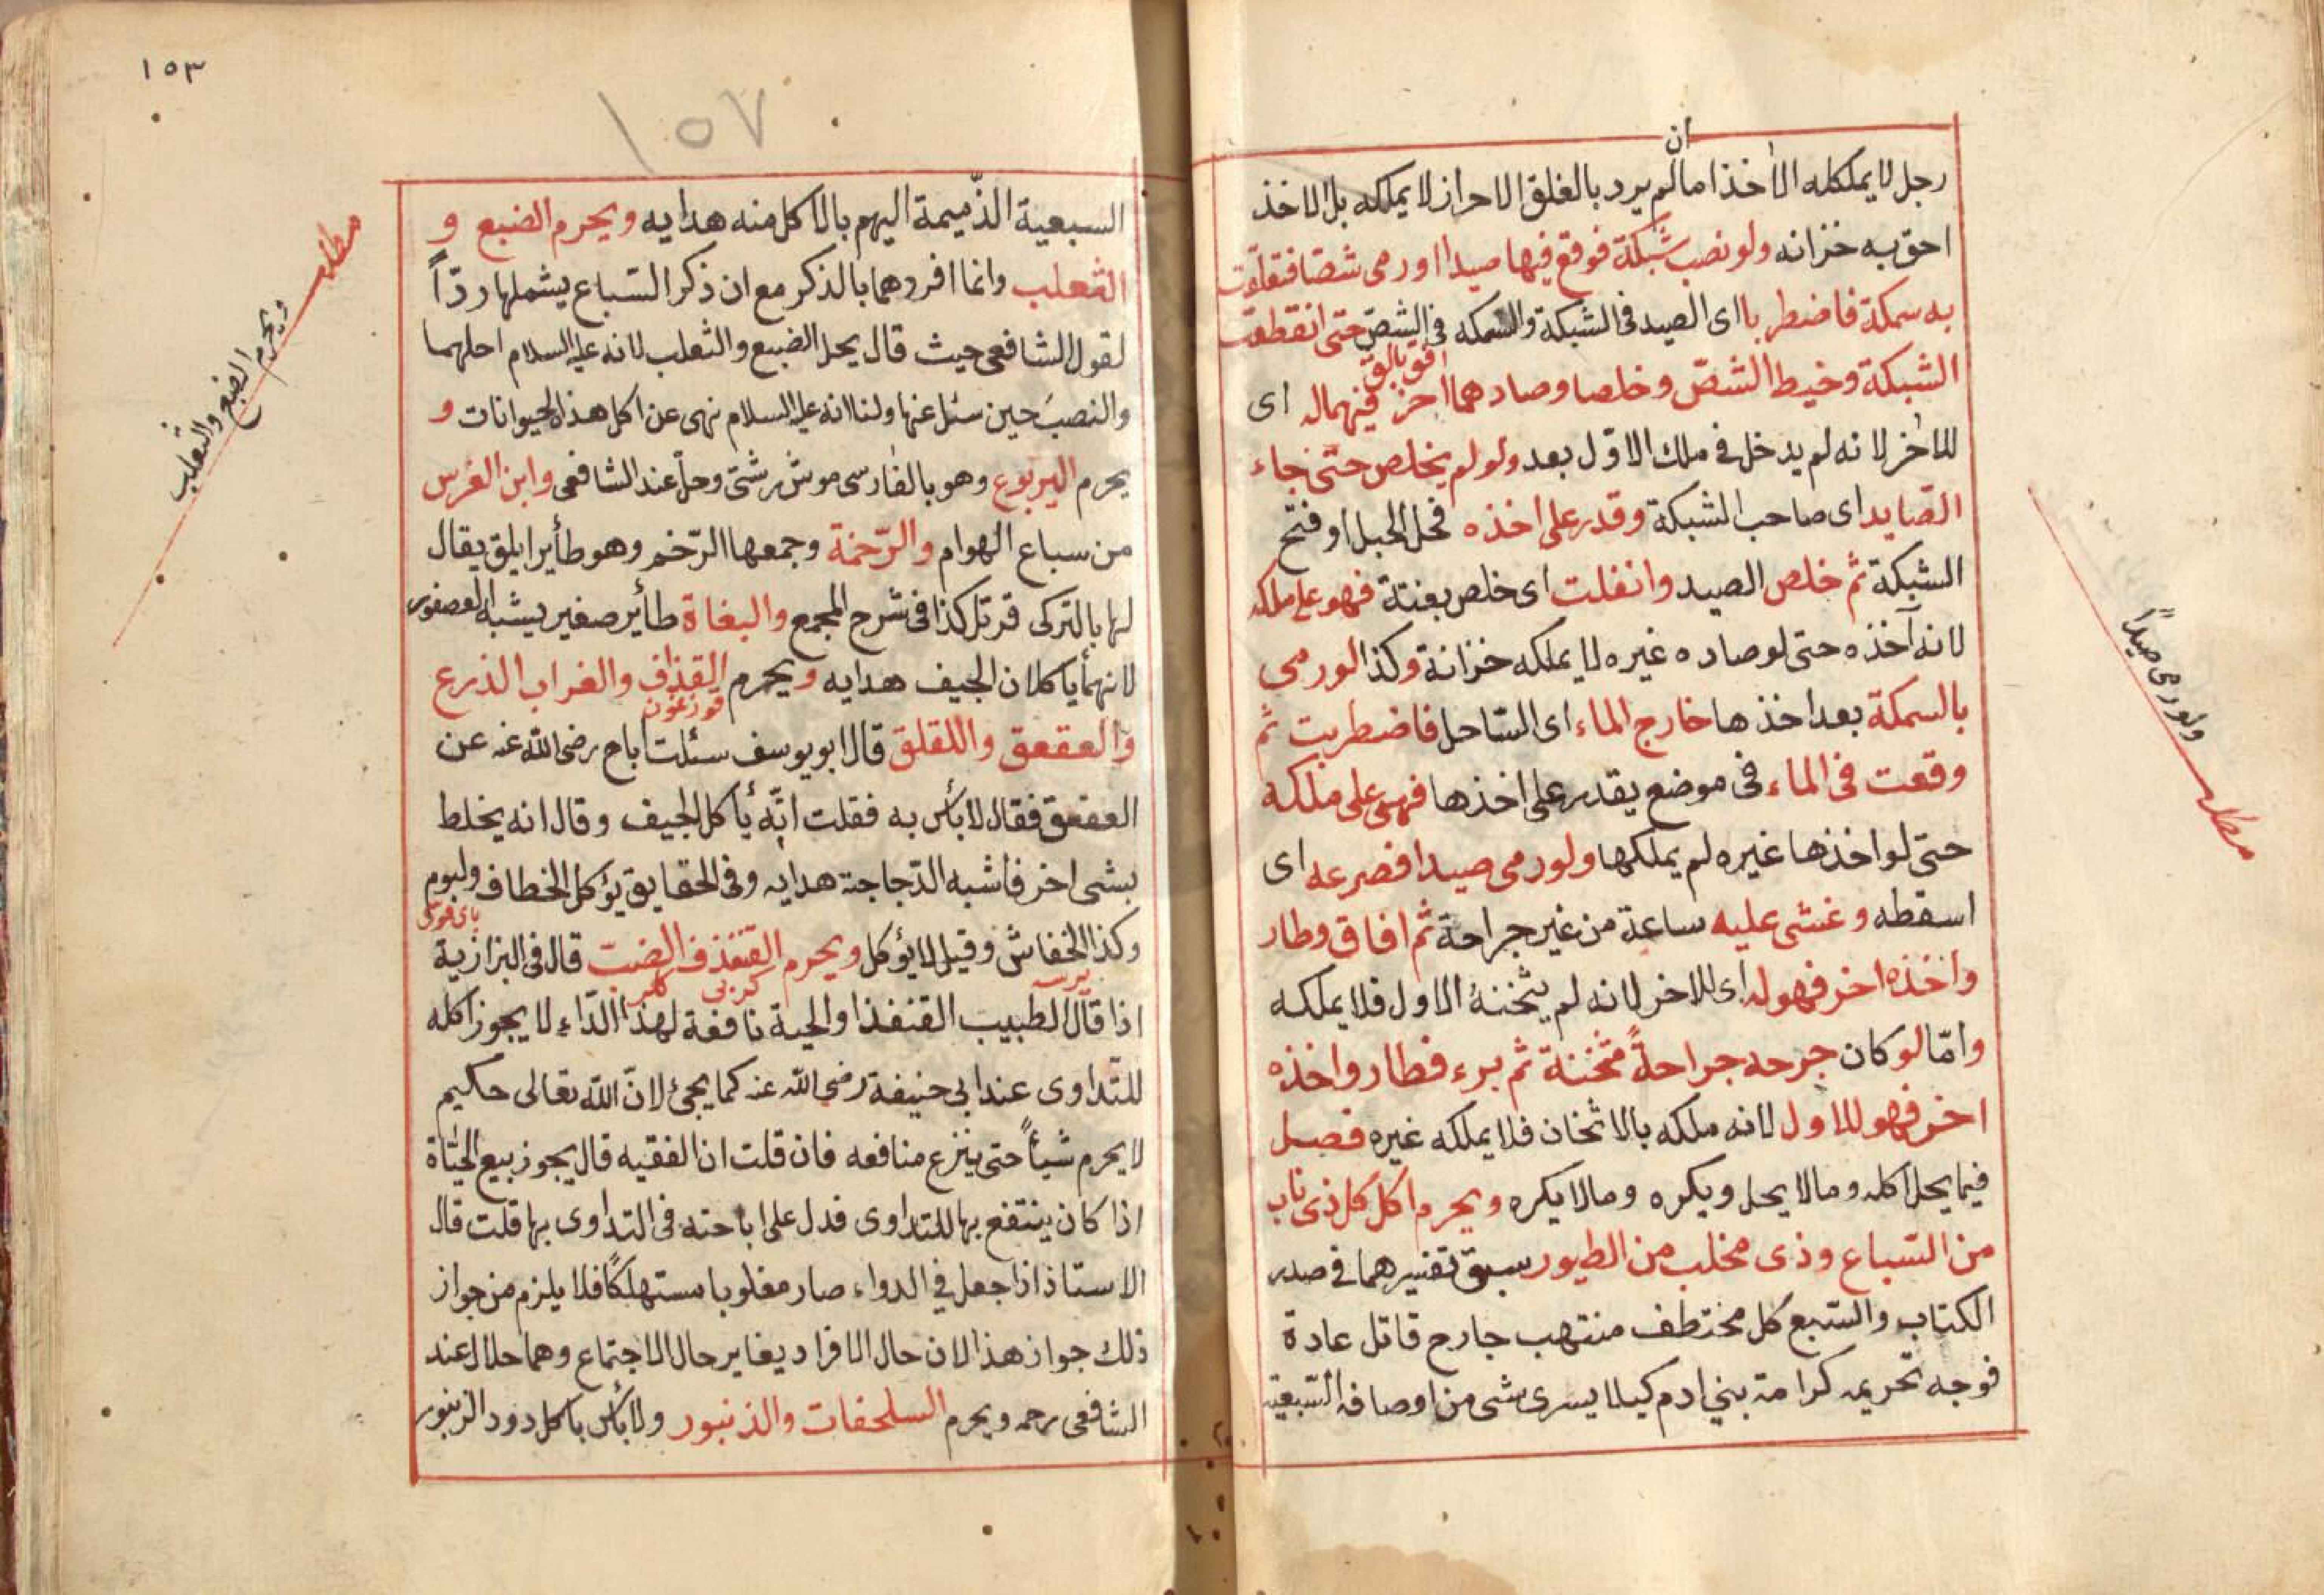 ان
رجل لا يملكله الا خذ اما لم يرد بالغلق الاحراز لا يملكه بل الاخذ
احق به خزانه ولو نصب شبكة فوقع فيها صيدا اورمى شصا فتعلقت
به سمكة فاضطربا اى الصيد فى الشبكة والسمكه فى الشص حتى انقطعت
الشبكة وخيط الشصّ وخلصا وصادهما اخر فهما له اى
للاخر لانه لم يدخل فى ملك الاوّل بعد ولو لم يخلص حتى جاء
الصّايد اى صاحب الشبكة وقدر على اخذه فحل الحبل او فتح
الشبكة ثم خلص الصيد وانفلت اى خلص بغتة فهو على ملكه
لانه آخذه حتى لو صاده غيره لا يملكه خزانة وكذا لورمى
بالسمكة بعد اخذها خارج الماء اى الساحل فاضطربت ثم
وقعت فى الماء فى موضع يقدر على اخذها فهى على ملكه
حتى لو اخذها غيره لم يملكها ولورمى صيدا فصرعه اى
اسقطه وغشى عليه ساعة من غير جراحة ثم افاق وطار
واخذه اخر فهو له اى للاخر لانه لم يثخنه الاول فلا يملكه
وامّا لو كان جرحه جراحةً مثخنة ثم برء فطار واخذه
اخر فهو للاول لانه ملكه بالاثخان فلا يملكه غيره فصل
فيما يحل اكله ومالا يحل ويكره ومالا يكره ويحرم اكل كل ذى ناب
من السّباع وذى مخلب من الطيور سبق تفسيرهما فى صدر
الكتاب والسّبع كل مختطف منتهب جارح قاتل عادة
فوجه تحريمه كرامة بنى ادم كيلا يسرى شى من اوصافه السّبعية
ولورمى صيداً
مطلب
١٥٣
١٥٧
السبعية الذّميمة اليهم بالاكل منه هدايه ويحرم الضبع و
الثعلب وانما افردهما بالذكر مع ان ذكر السّباع يشملها ردّاً
لقول الشافعى حيث قال يحل الضبع والثعلب لانه عليه السلام احلهما
حين سئل عنها ولنا انه عليه السلام نهى عن اكل هذه الحيوانات و
يحرم اليربوع وهو بالفارسى موش دشتى وحل عند الشافعى وابن الغرس
من سباع الهوام والرّخمة وجمعها الرّخم وهو طأير ابلق يقال
لها بالتركى قرتل كذا فى شرح المجمع والبغاة طأير صغير يشبه العصفور
لانهما يأكلان الجيف هدايه ويحرم القذاف والغراب الذرع
والعقعق واللقلق قال ابو يوسف سئلت اباح رضى الله عنه عن
العقعق فقال لابأس به فقلت انّه يأكل الجيف وقال انه يخلط
بشى اخر فاشبه الدّجاجة هدايه وفى الحقايق يؤكل الخطاف ولبوم
وكذا الخفاش وقيل لا يؤكل ويحرم القنفذ والضب قال فى البزازية
كربى كلر
اذا قال الطبيب القنفذ او الحية نافعة لهذا الدّاء لا يجوز اكله
للتّداوى عند ابى حنيفة رضى الله عنه كما يجئ لانّ الله تعالى حكيم
لا يحرم شيأً حتى ينزع منافعه فان قلت ان الفقيه قال يجوز بيع الحيّاة
اذا كان ينتفع بها للتداوى فدل على اباحته فى التداوى بها قلت قال
الاستاذ اذا جعل فى الدواء صار مغلوبا مستهلكاً فلا يلزم من جواز
ذلك جواز هذا لان حال الافراد يغاير حال الاجتماع وهما حلال عند
الشافعى رحمه ويحرم السلحفات والذنبور ولابأس باكل دود الزنبور
مطلب
ويحرم الضبع والثعلب